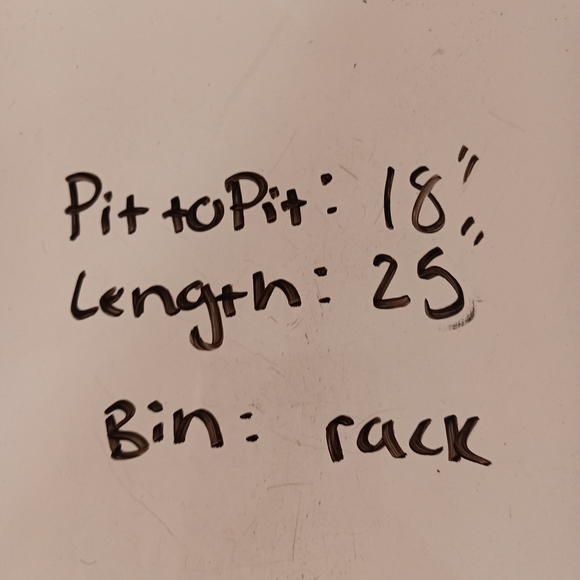 Pit to Pit: 18"
Length: 25"
Bin: rack